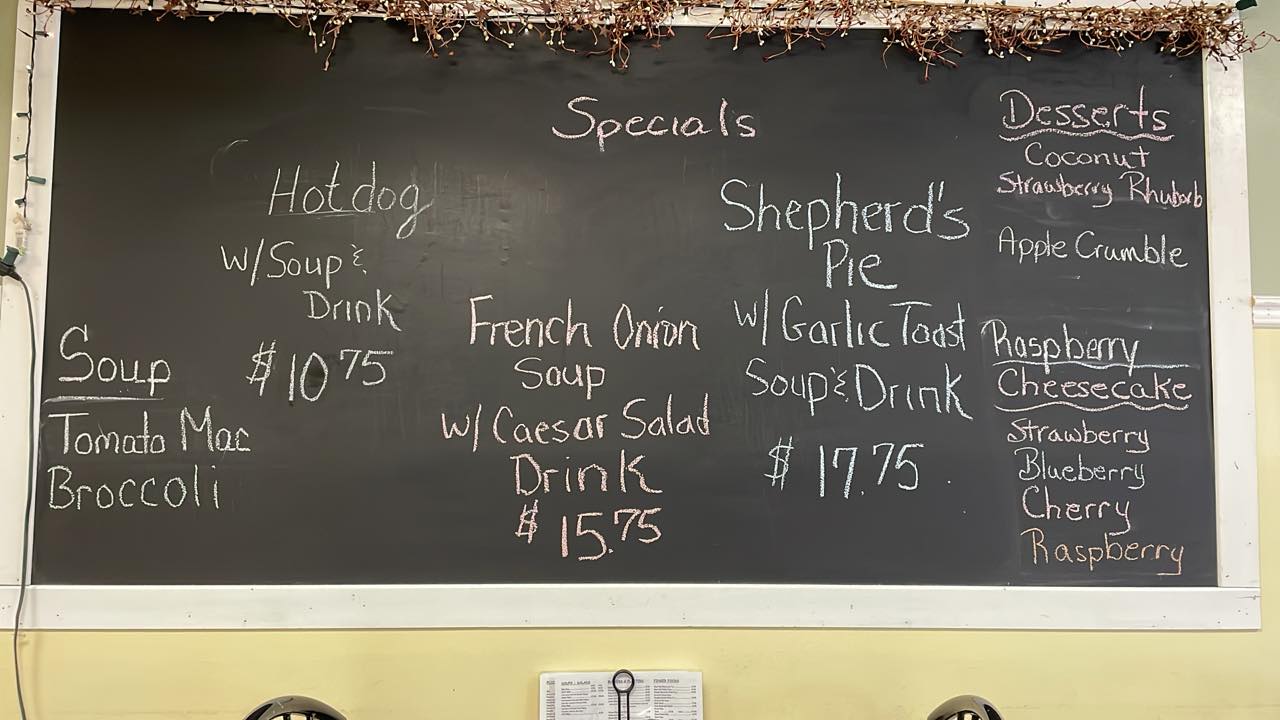 Specials
Hotdog
w/Soup &
Drink
$10 75
Soup
Tomato Mac
Broccoli
French Onion
Soup
w/ Caesar Salad
Drink
$ 15.75
Shepherd's
Pie
w/ Garlic Toast
Soup & Drink
$ 17.75
Desserts
Coconut
Strawberry Rhubarb
Apple Crumble
Raspberry
Cheesecake
Strawberry
Blueberry
Cherry
Raspberry